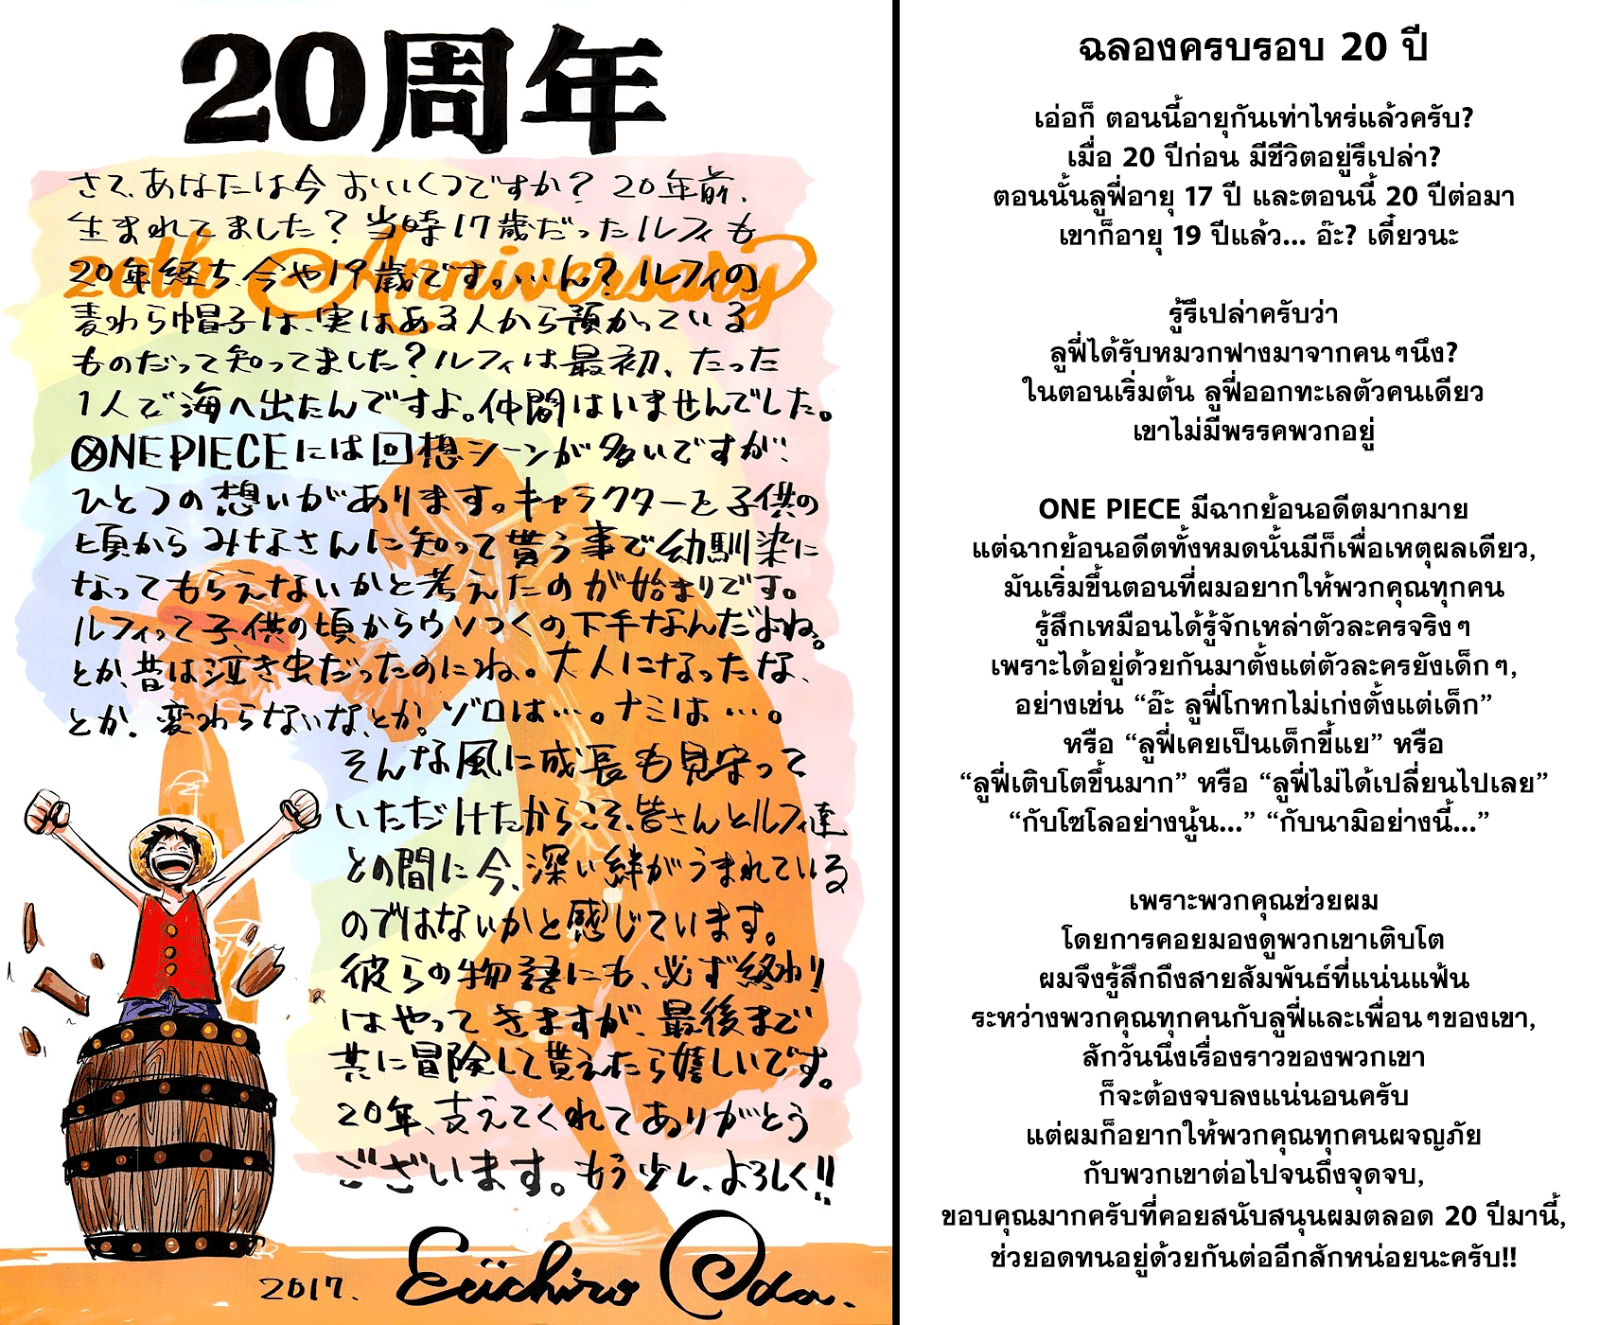 20周年
さて、あなたは今おいくつですか？20年前、
生まれてました？当時17歳だったルフィも
20th Anniversary
20年経ち、今や19歳です。…ん？ルフィの
麦わら帽子は、実はある人から預かっている
ものだって知ってました？ルフィは最初、たった
1人で海へ出たんですよ。仲間はいませんでした。
ONE PIECEには回想シーンが多いですが、
ひとつの想いがあります。キャラクターを子供の
頃からみなさんに知って貰う事で幼馴染に
なってもらえないかと考えたのが始まりです。
ルフィって子供の頃からウソつくの下手なんだよね。
とか、昔は泣き虫だったのにね。大人になったな、
とか。変わらないな、とか。ゾロは…。ナミは…。
そんな風に成長も見守って
いただけたからこそ、皆さんとルフィ達
との間に今、深い絆がうまれている
のではないかと感じています。
彼らの物語にも、必ず終わり
はやってきますが、最後まで
共に冒険して貰えたら嬉しいです。
20年、支えてくれてありがとう
ございます。もう少し、よろしく!!
2017. Eiichiro Oda.
ฉลองครบรอบ 20 ปี
เอ่อก็ ตอนนี้อายุกันเท่าไหร่แล้วครับ?
เมื่อ 20 ปีก่อน มีชีวิตอยู่รึเปล่า?
ตอนนั้นลูฟี่อายุ 17 ปี และตอนนี้ 20 ปีต่อมา
เขาก็อายุ 19 ปีแล้ว... อ๊ะ? เดี๋ยวนะ
รู้รึเปล่าครับว่า
ลูฟี่ได้รับหมวกฟางมาจากคนๆนึง?
ในตอนเริ่มต้น ลูฟี่ออกทะเลตัวคนเดียว
เขาไม่มีพรรคพวกอยู่
ONE PIECE มีฉากย้อนอดีตมากมาย
แต่ฉากย้อนอดีตทั้งหมดนั้นมีก็เพื่อเหตุผลเดียว,
มันเริ่มขึ้นตอนที่ผมอยากให้พวกคุณทุกคน
รู้สึกเหมือนได้รู้จักเหล่าตัวละครจริงๆ
เพราะได้อยู่ด้วยกันมาตั้งแต่ตัวละครยังเด็กๆ,
อย่างเช่น “อ๊ะ ลูฟี่โกหกไม่เก่งตั้งแต่เด็ก”
หรือ “ลูฟี่เคยเป็นเด็กขี้แย” หรือ
“ลูฟี่เติบโตขึ้นมาก” หรือ “ลูฟี่ไม่ได้เปลี่ยนไปเลย”
“กับโซโลอย่างนู้น...” “กับนามิอย่างนี้...”
เพราะพวกคุณช่วยผม
โดยการคอยมองดูพวกเขาเติบโต
ผมจึงรู้สึกถึงสายสัมพันธ์ที่แน่นแฟ้น
ระหว่างพวกคุณทุกคนกับลูฟี่และเพื่อนๆของเขา,
สักวันนึงเรื่องราวของพวกเขา
ก็จะต้องจบลงแน่นอนครับ
แต่ผมก็อยากให้พวกคุณทุกคนผจญภัย
กับพวกเขาต่อไปจนถึงจุดจบ,
ขอบคุณมากครับที่คอยสนับสนุนผมตลอด 20 ปีมานี้,
ช่วยอดทนอยู่ด้วยกันต่ออีกสักหน่อยนะครับ!!